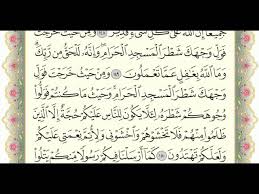 جَمِيعًا إِنَّ ٱللَّهَ عَلَىٰ كُلِّ شَىْءٍ قَدِيرٌ ١٤٨ وَمِنْ حَيْثُ خَرَجْتَ
فَوَلِّ وَجْهَكَ شَطْرَ ٱلْمَسْجِدِ ٱلْحَرَامِ وَإِنَّهُۥ لَلْحَقُّ مِن رَّبِّكَ
وَمَا ٱللَّهُ بِغَٰفِلٍ عَمَّا تَعْمَلُونَ ١٤٩ وَمِنْ حَيْثُ خَرَجْتَ
فَوَلِّ وَجْهَكَ شَطْرَ ٱلْمَسْجِدِ ٱلْحَرَامِ وَحَيْثُ مَا كُنتُمْ فَوَلُّوا۟
وُجُوهَكُمْ شَطْرَهُۥ لِئَلَّا يَكُونَ لِلنَّاسِ عَلَيْكُمْ حُجَّةٌ إِلَّا ٱلَّذِينَ
ظَلَمُوا۟ مِنْهُمْ فَلَا تَخْشَوْهُمْ وَٱخْشَوْنِى وَلِأُتِمَّ نِعْمَتِى عَلَيْكُمْ
وَلَعَلَّكُمْ تَهْتَدُونَ ١٥٠ كَمَآ أَرْسَلْنَا فِيكُمْ رَسُولًا مِّنكُمْ يَتْلُوا۟